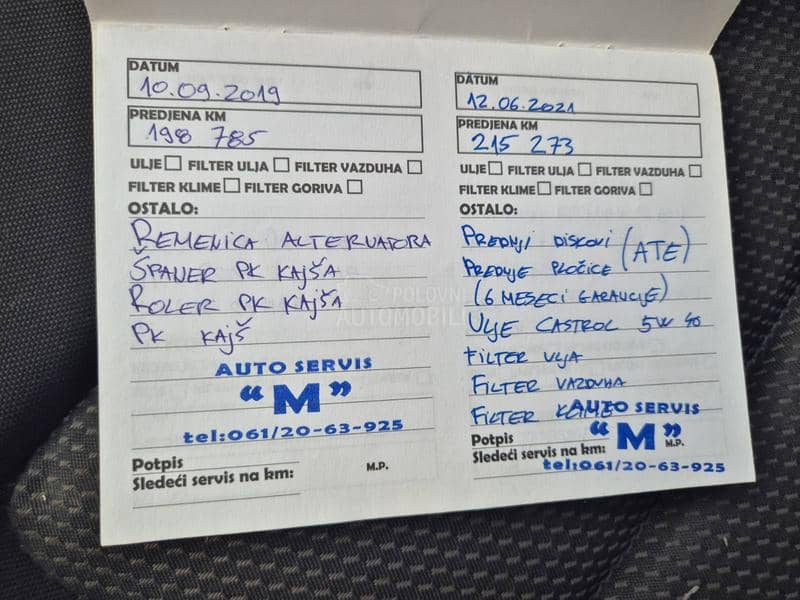 DATUM
10.09.2019
PREDJENA KM
198 785
ULJE FILTER ULJA FILTER VAZDUHA
FILTER KLIME FILTER GORIVA
OSTALO:
REMENICA ALTERNATORA
ŠPANER PK KAJŠA
ROLER PK KAJŠA
PK KAJŠ
AUTO SERVIS
"M"
tel:061/20-63-925
Potpis
Sledeći servis na km:
M.P.
DATUM
12.06.2021
PREDJENA KM
215 273
ULJE FILTER ULJA FILTER VAZDUHA
FILTER KLIME FILTER GORIVA
OSTALO:
PREDNJI DISKOVI (ATE)
PREDNJE PLOČICE
(6 MESECI GARANCIJE)
ULJE CASTROL 5W 40
FILTER ULJA
FILTER VAZDUHA
FILTER KLIME
AUTO SERVIS
"M"
Potpis
M.P.
Sledeći servis na km:
tel:061/20-63-925
POLOVNI
AUTOMOBILI